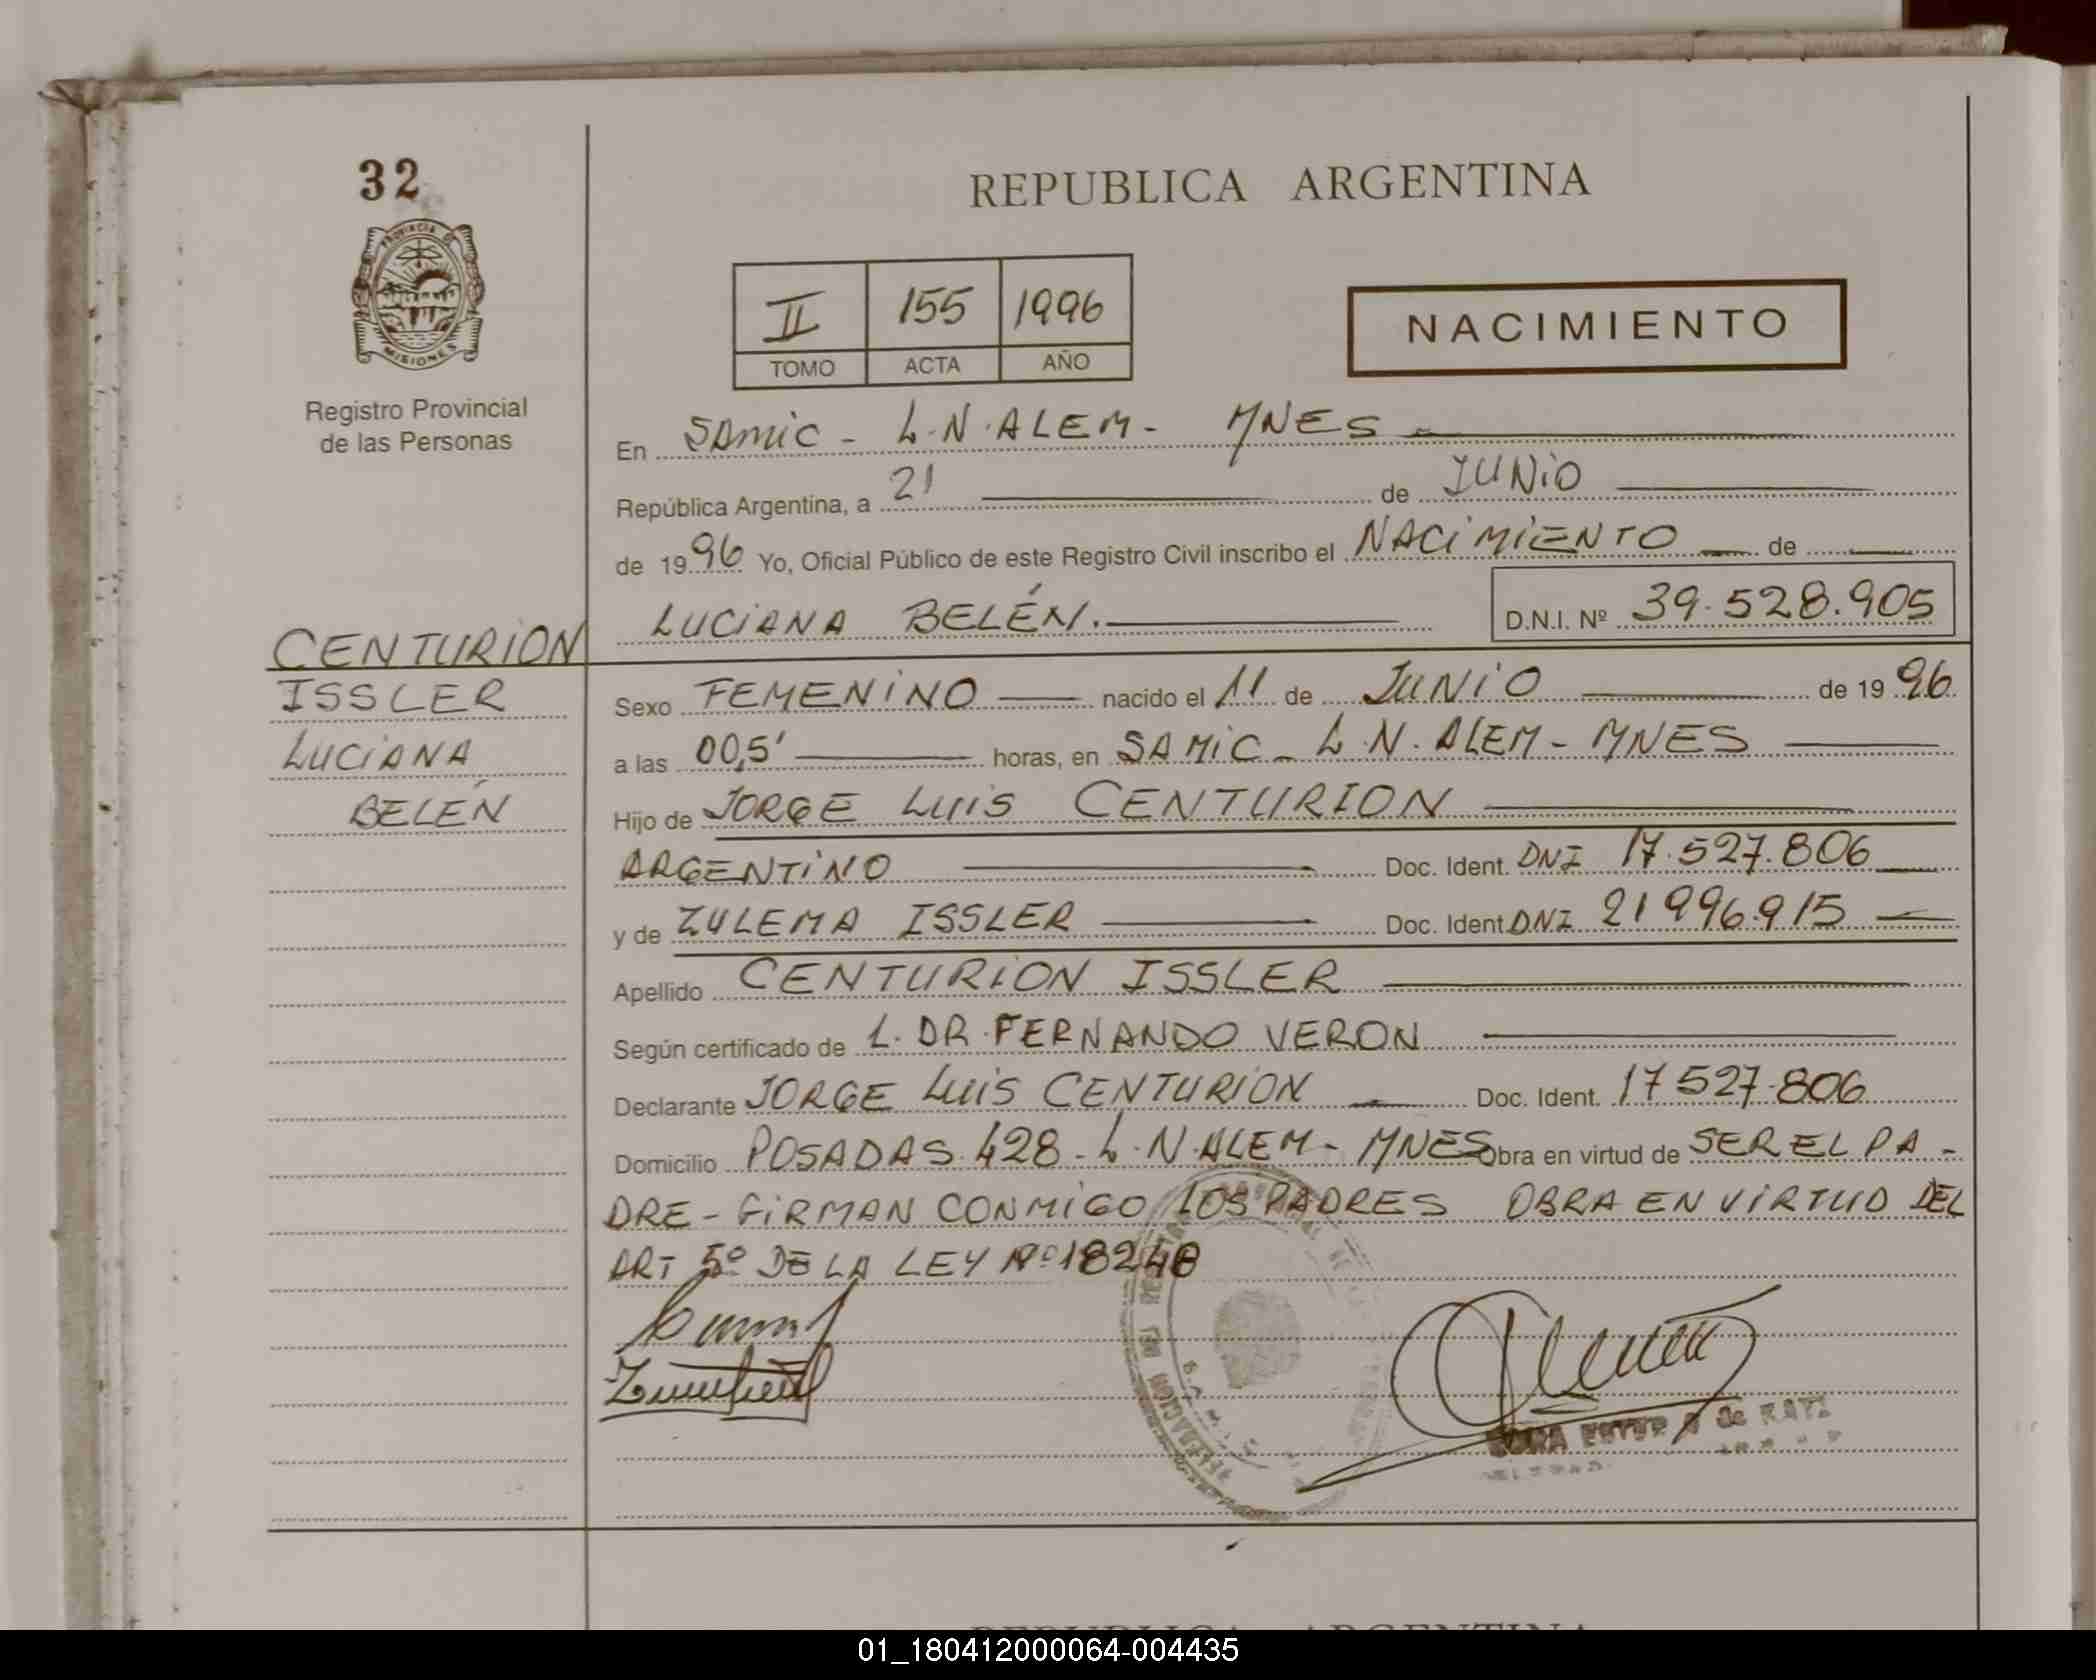 32
PROVINCIA DE
MISIONES
Registro Provincial
de las Personas
REPUBLICA ARGENTINA
II 155 1996
TOMO ACTA AÑO
NACIMIENTO
En SAMIC - L.N. ALEM - MNES
República Argentina, a 21 de JUNIO
de 1996 Yo, Oficial Público de este Registro Civil inscribo el NACIMIENTO de
LUCIANA BELÉN. D.N.I. Nº 39.528.905
CENTURION
ISSLER
LUCIANA
BELÉN
Sexo FEMENINO nacido el 11 de JUNIO de 1996
a las 00,5' horas, en SAMIC - L.N. ALEM - MNES
Hijo de JORGE LUIS CENTURION
ARGENTINO Doc. Ident. DNI 17.527.806
y de ZULEMA ISSLER Doc. Ident. DNI 21996.915
Apellido CENTURION ISSLER
Según certificado de L. DR. FERNANDO VERON
Declarante JORGE LUIS CENTURION Doc. Ident. 17527.806
Domicilio POSADAS 428 - L.N. ALEM - MNES Obra en virtud de SER EL PA-
DRE - FIRMAN CONMIGO LOS PADRES OBRA EN VIRTUD DEL
ART 5º DE LA LEY Nº 18248
REPUBLICA ARGENTINA
01_180412000064-004435